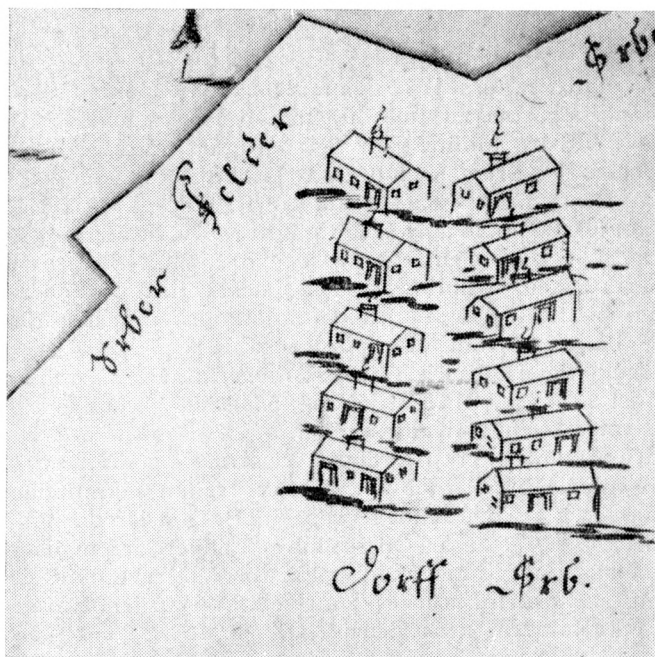 Erbe
Felder
Erber
Dorff Erb.